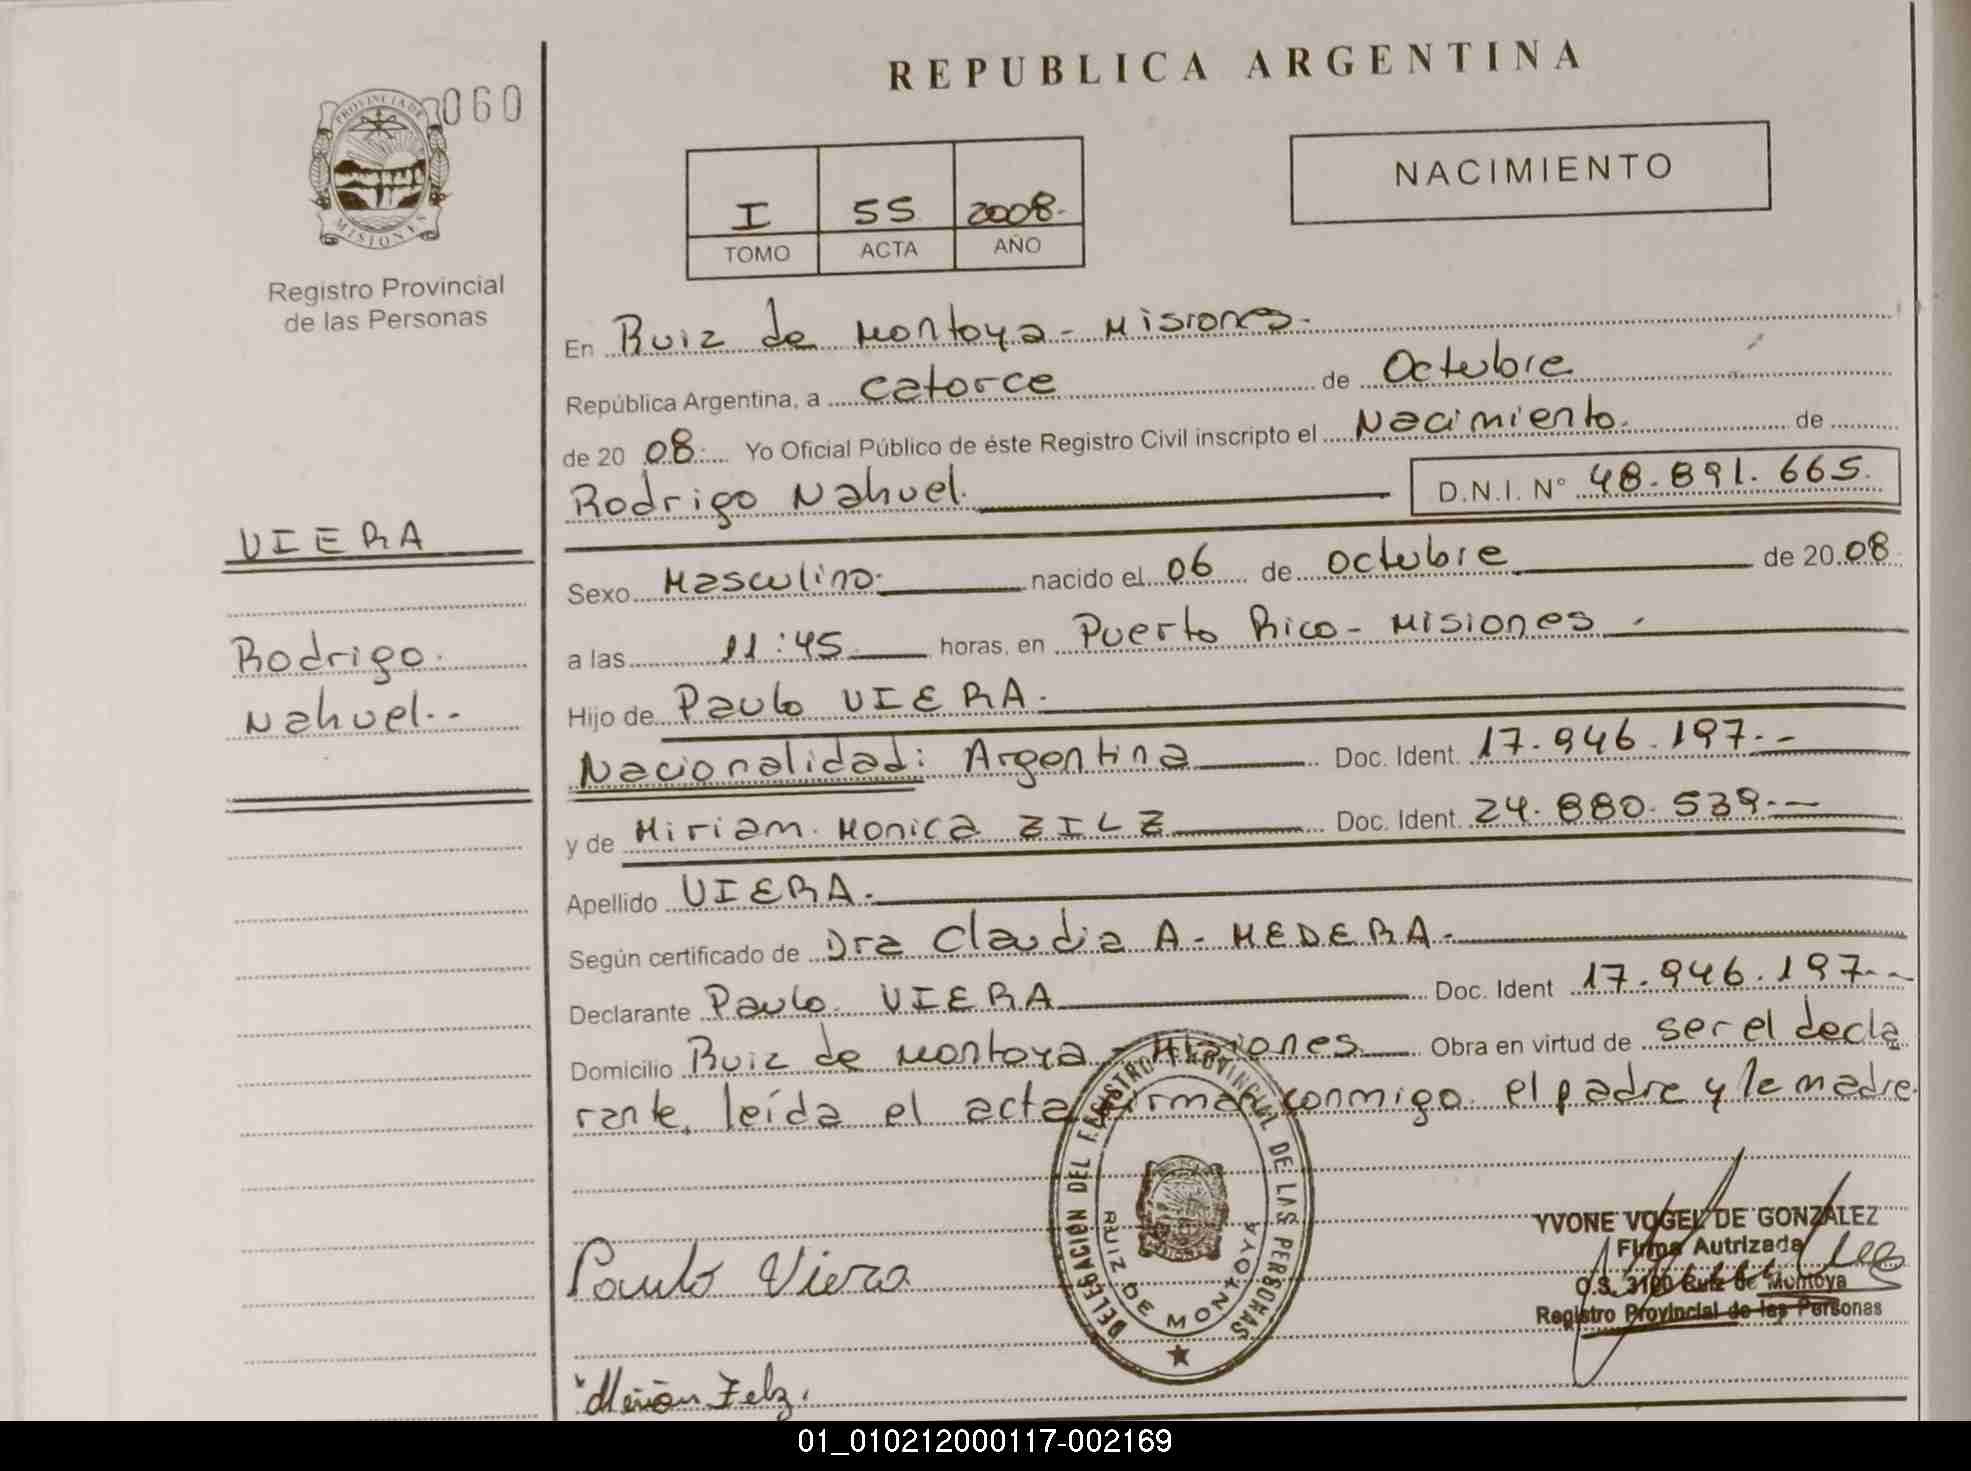 REPUBLICA ARGENTINA
060
PROVINCIA DE MISIONES
Registro Provincial
de las Personas
NACIMIENTO
I 55 2008.
TOMO ACTA AÑO
En Ruiz de Montoya - Misiones.
República Argentina, a catorce de Octubre
de 20 08. Yo Oficial Público de éste Registro Civil inscripto el Nacimiento. de
Rodrigo Nahuel. D.N.I. N° 48.891.665.
VIERA
Rodrigo.
Nahuel.-
Sexo Masculino. nacido el 06 de octubre de 20 08
a las 11:45 horas, en Puerto Rico - Misiones.
Hijo de Paulo VIERA.
Nacionalidad: Argentina Doc. Ident. 17.946.197.-
y de Miriam Monica ZILZ Doc. Ident. 24.880.539.-
Apellido VIERA.
Según certificado de Dra Claudia A. MEDERA.
Declarante Paulo VIERA Doc. Ident 17.946.197.-
Domicilio Ruiz de Montoya - Misiones Obra en virtud de ser el decla
rante. leída el acta firman conmigo el padre y la madre.
DELEGACIÓN DEL REGISTRO PROVINCIAL DE LAS PERSONAS
RUIZ DE MONTOYA
YVONE VOGEL DE GONZALEZ
Firma Autrizada
O.S. 3100 Ruiz de Montoya
Registro Provincial de las Personas
Paulo Viera
01_010212000117-002169